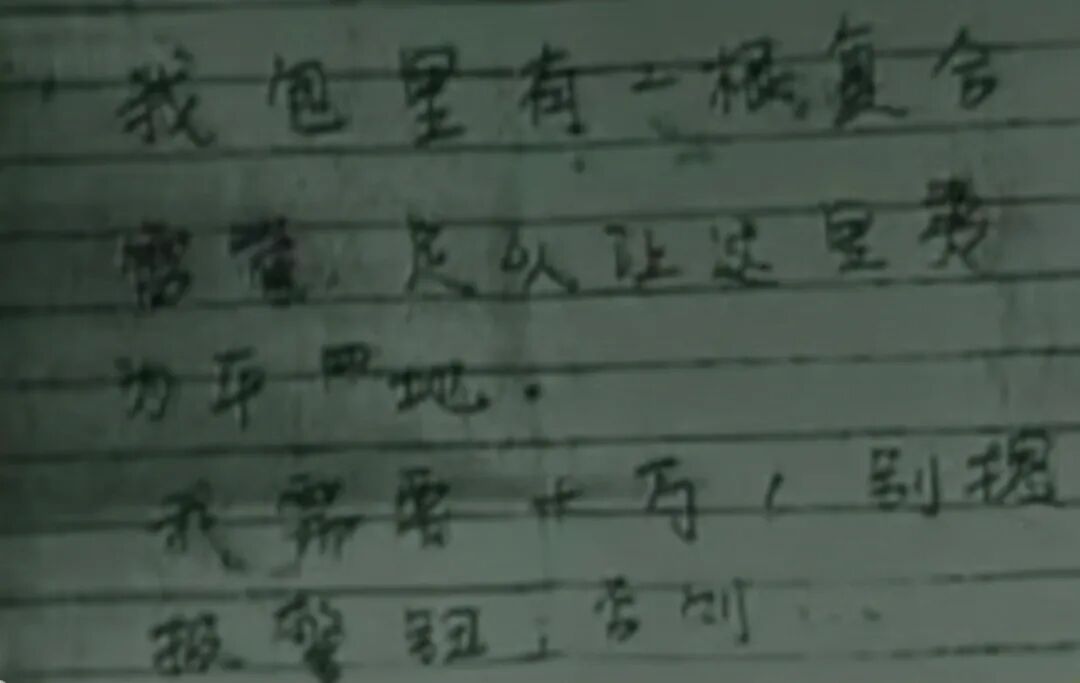 我包里有一根复合
雷管 足以让这里变
为平四地.
我需要十万,别摁
报警钮,否则……